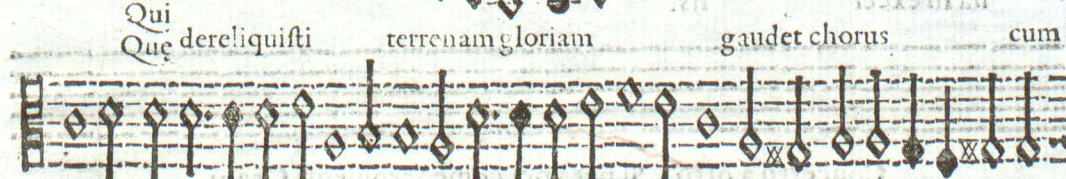 Qui
Quę dereliquiſti terrenam gloriam gaudet chorus cum